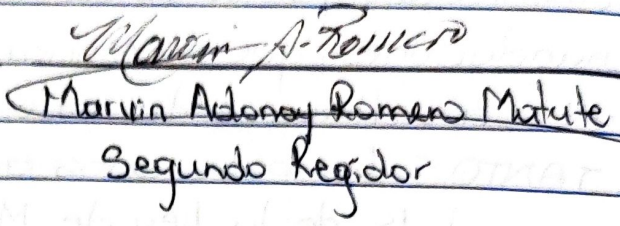 Marvin A. Romero
Marvin Adonay Romero Matute
Segundo Regidor